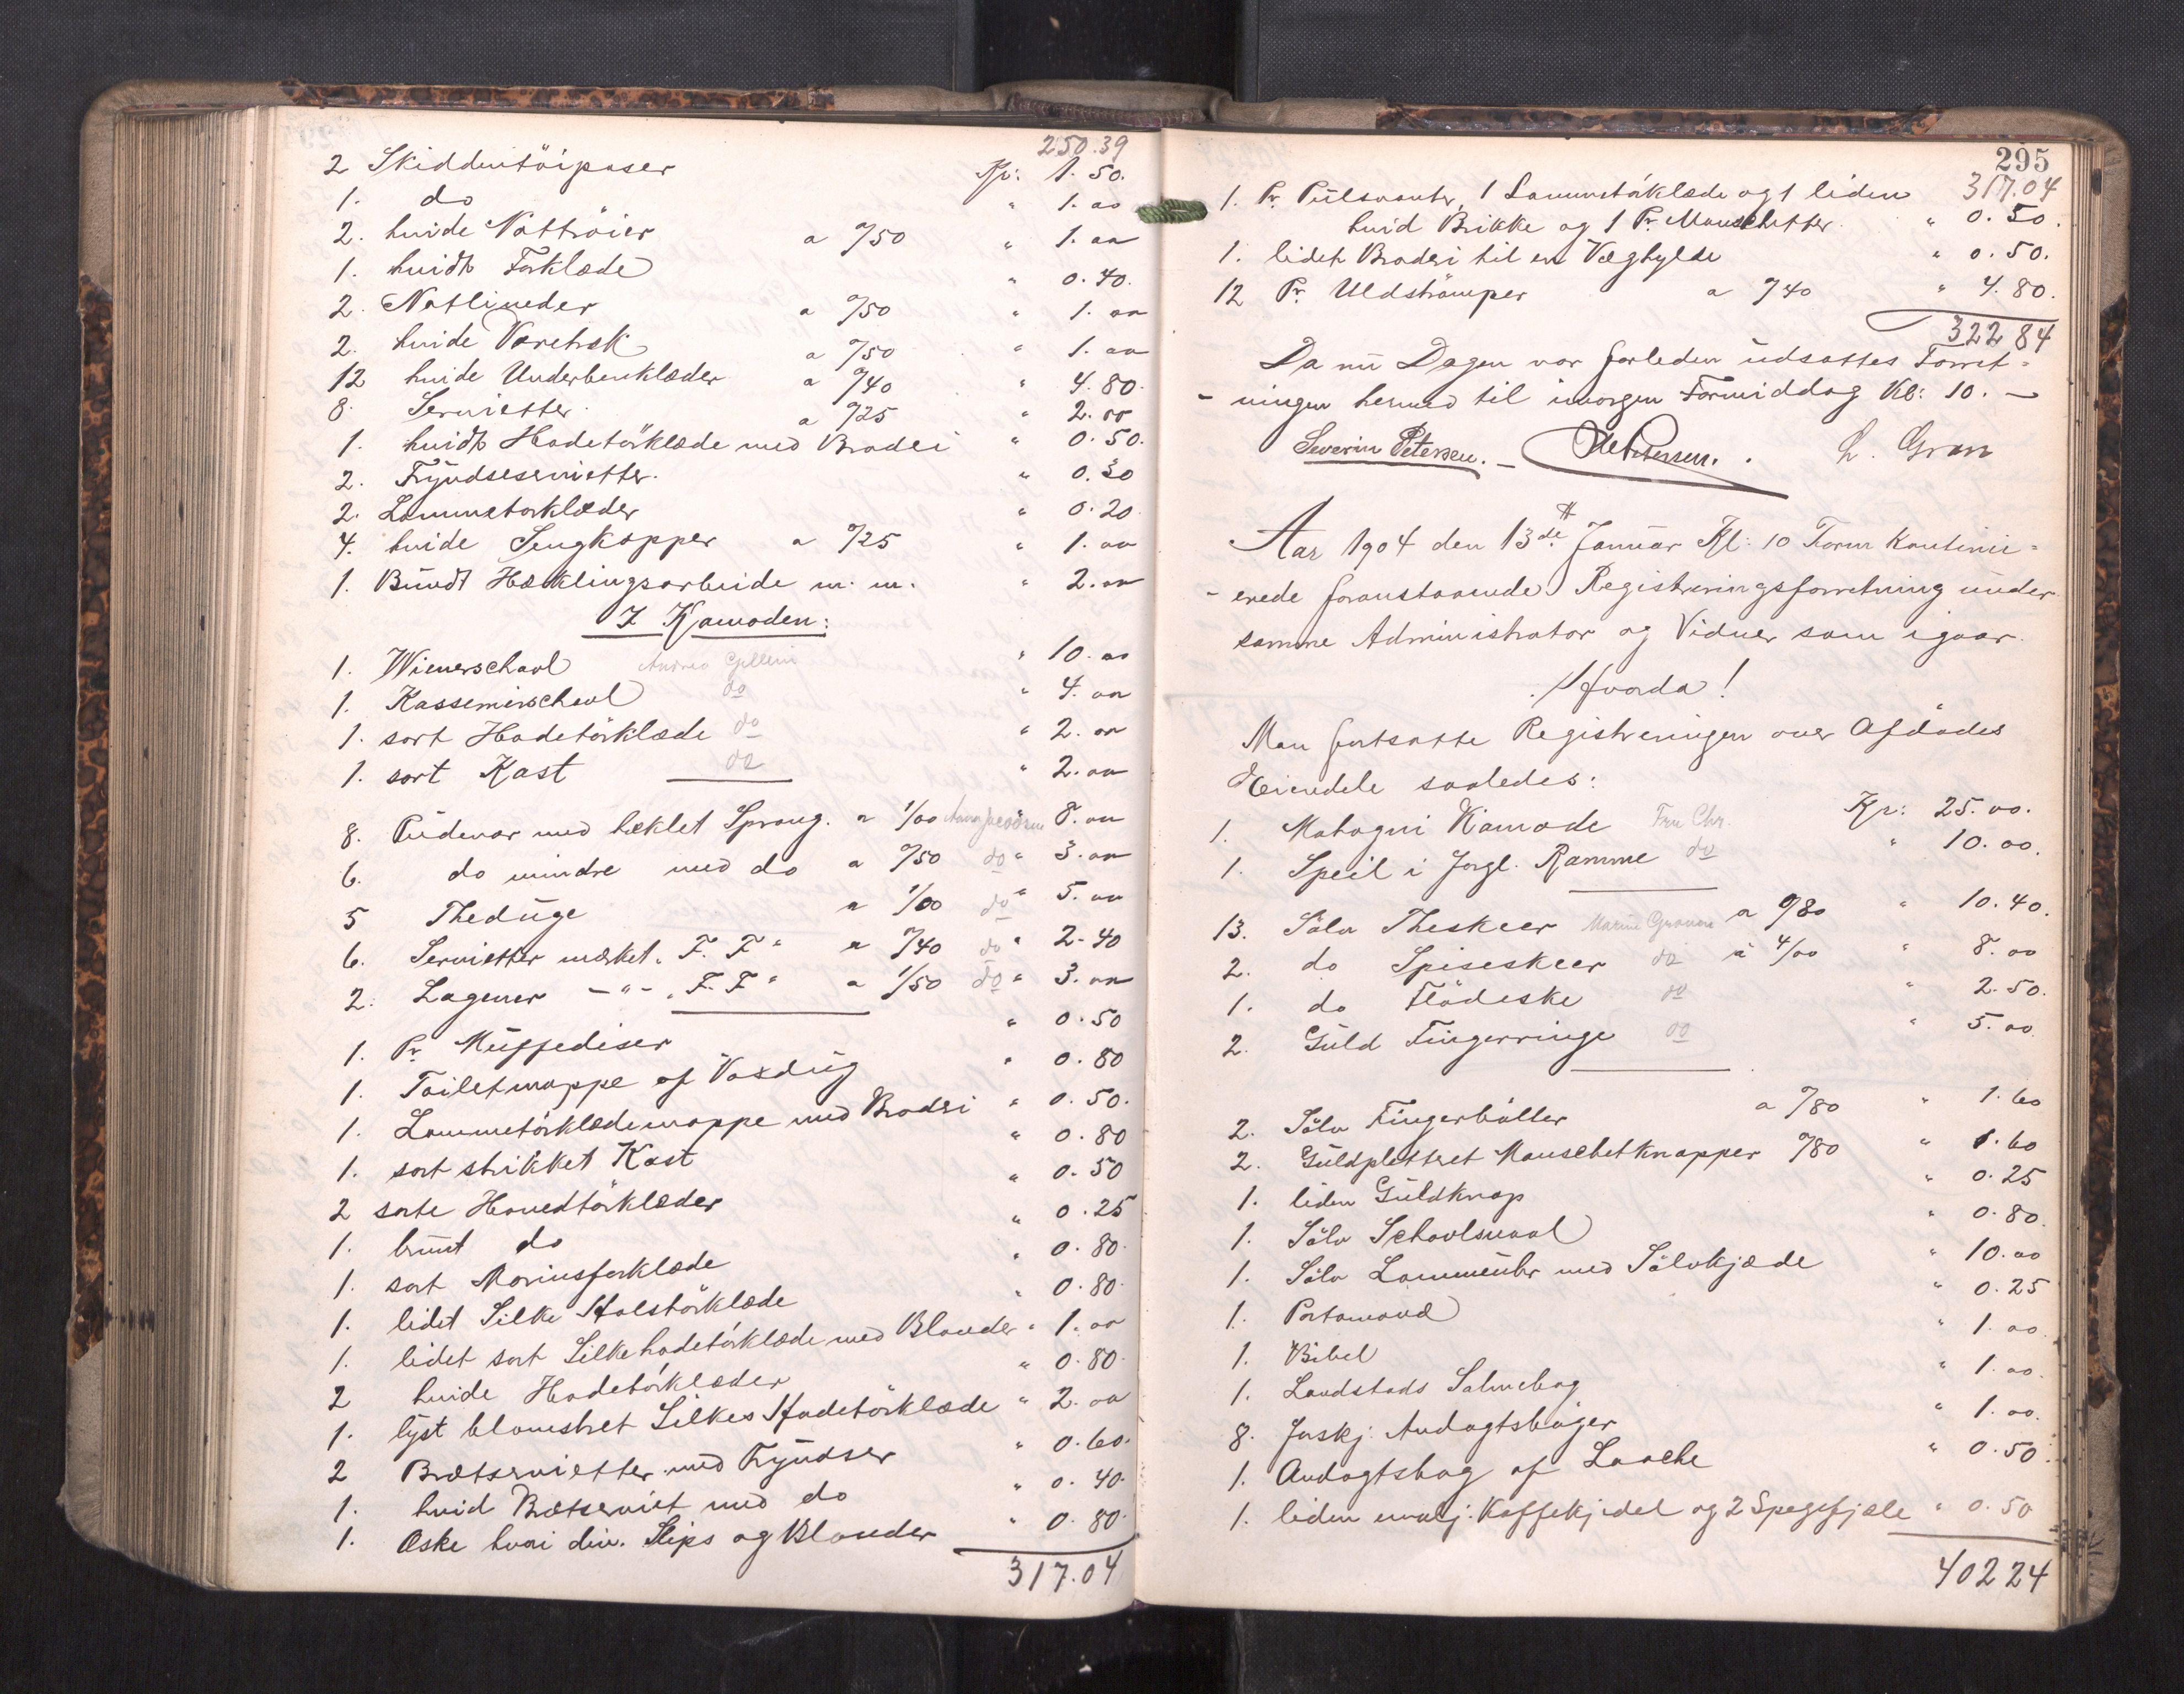 250.39
2 Skiddentöiposer Kr: 1.50.
1. do " 1.oo
2. hvide Nattröier a 0/50 " 1.oo
1. hvidt Forklæde " 0.40.
2. Natlinneder a 0/50 " 1.oo
2. hvide Varetræk a 0/50 " 1.oo
12 hvide Underbenklæder a 0/40 " 4.80.
8. Servietter a 0/25 " 2.oo
1. hvidt Hodetörklæde med Broderi " 0.50.
2. Fryndseservietter. " 0.30
2. Lommetørklæder " 0.20
4. hvide Sengkapper a 0/25 " 1.oo
1. Bundt Hæklingsarbeide m. m. " 2.oo
I Kamoden:
1. Wienerschavl Andrea " 10.oo
1. Kassemirschavl do " 4.oo
1. sort Hodetörklæde do " 2.oo
1. sort Kast do " 2.oo
8. Pudevar med heklet Sprang. a 1/00 Anna 8.oo
6. do mindre med do a 0/50 do " 3.oo
5 Theduge a 1/00 do " 5.oo
6. Servietter mærket " F. F " a 0/40 do " 2.40
2. Lagener -"- " F. F " a 1/50 do " 3.oo
1. Pr Muffediser " 0.50
1. Toiletmappe af Voxdug " 0.80
1. Lommetörklædemappe med Broderi " 0.50.
1. sort strikket Kast " 0.80
2 sorte Hovedtörklæder " 0.50
1. brunt do " 0.25
1. sort Morinsforklæde " 0.80.
1. lidet Silke Halstörklæde " 0.80.
1. lidet sort Silkehodetörklæde med Blonder " 1.oo
2 hvide Hodetörklæder " 0.80.
1. lyst blomstret Silkes Hodetörklæde " 2.oo
2 Bretservietter med Fryndser " 0.60.
1. hvid Bretserviet med do " 0.40.
1. Æske hvori div. Slips og Blonder " 0.80.
317.04
295
317.04
1. Pr. Pulsvanter, 1 Lommetörklæde og 1 liden
hvid Brikke og 1 Pr. Manschetter. " 0.50.
1. lidet Broderi til en Væghylde " 0.50.
12 Pr. Uldströmper a 0/40 " 4.80.
322 84
Da nu Dagen var forleden udsattes Forret-
-ningen hermed til imorgen Formiddag Kl: 10. –
Severin Petersen. – L. Gran
Aar 1904 den 13de Januar Kl: 10 Form kontinu-
-erede foranstaaende Registreringsforretning under
samme Administrator og Vidner som igaar.
Hvorda!
Man fortsatte Registreringen over Afdødes
Eiendele saaledes:
1. Mahogni Kamode Fru Chr. Kr: 25.oo.
1. Speil i forgl. Ramme do " 10.oo.
13. Sölv Theskeer Marine a 0/80 " 10.40.
2. do Spiseskeer do á 4/00 " 8.oo
1. do Flödeske do " 2.50.
2. Guld Fingerringe do " 5.oo
2. Sölv Fingerböller a 0/80 " 1.60
2. Guldplettret Manschetknapper 0/80 " 1.60
1. liden Guldknap " 0.25
1. Sölv Schavlsnaal " 0.80.
1. Sölv Lommeuhr med Sölvkjæde " 10.oo
1. Portomoné " 0.25
1. Bibel " 1.oo.
1. Landstads Salmebog " 1.oo.
8. forskj. Andagtsbøger " 1.oo.
1. Andagtsbog af Laache " 0.50.
1. liden emalj. Kaffekjedel og 2 Spegefjæle " 0.50
402 24